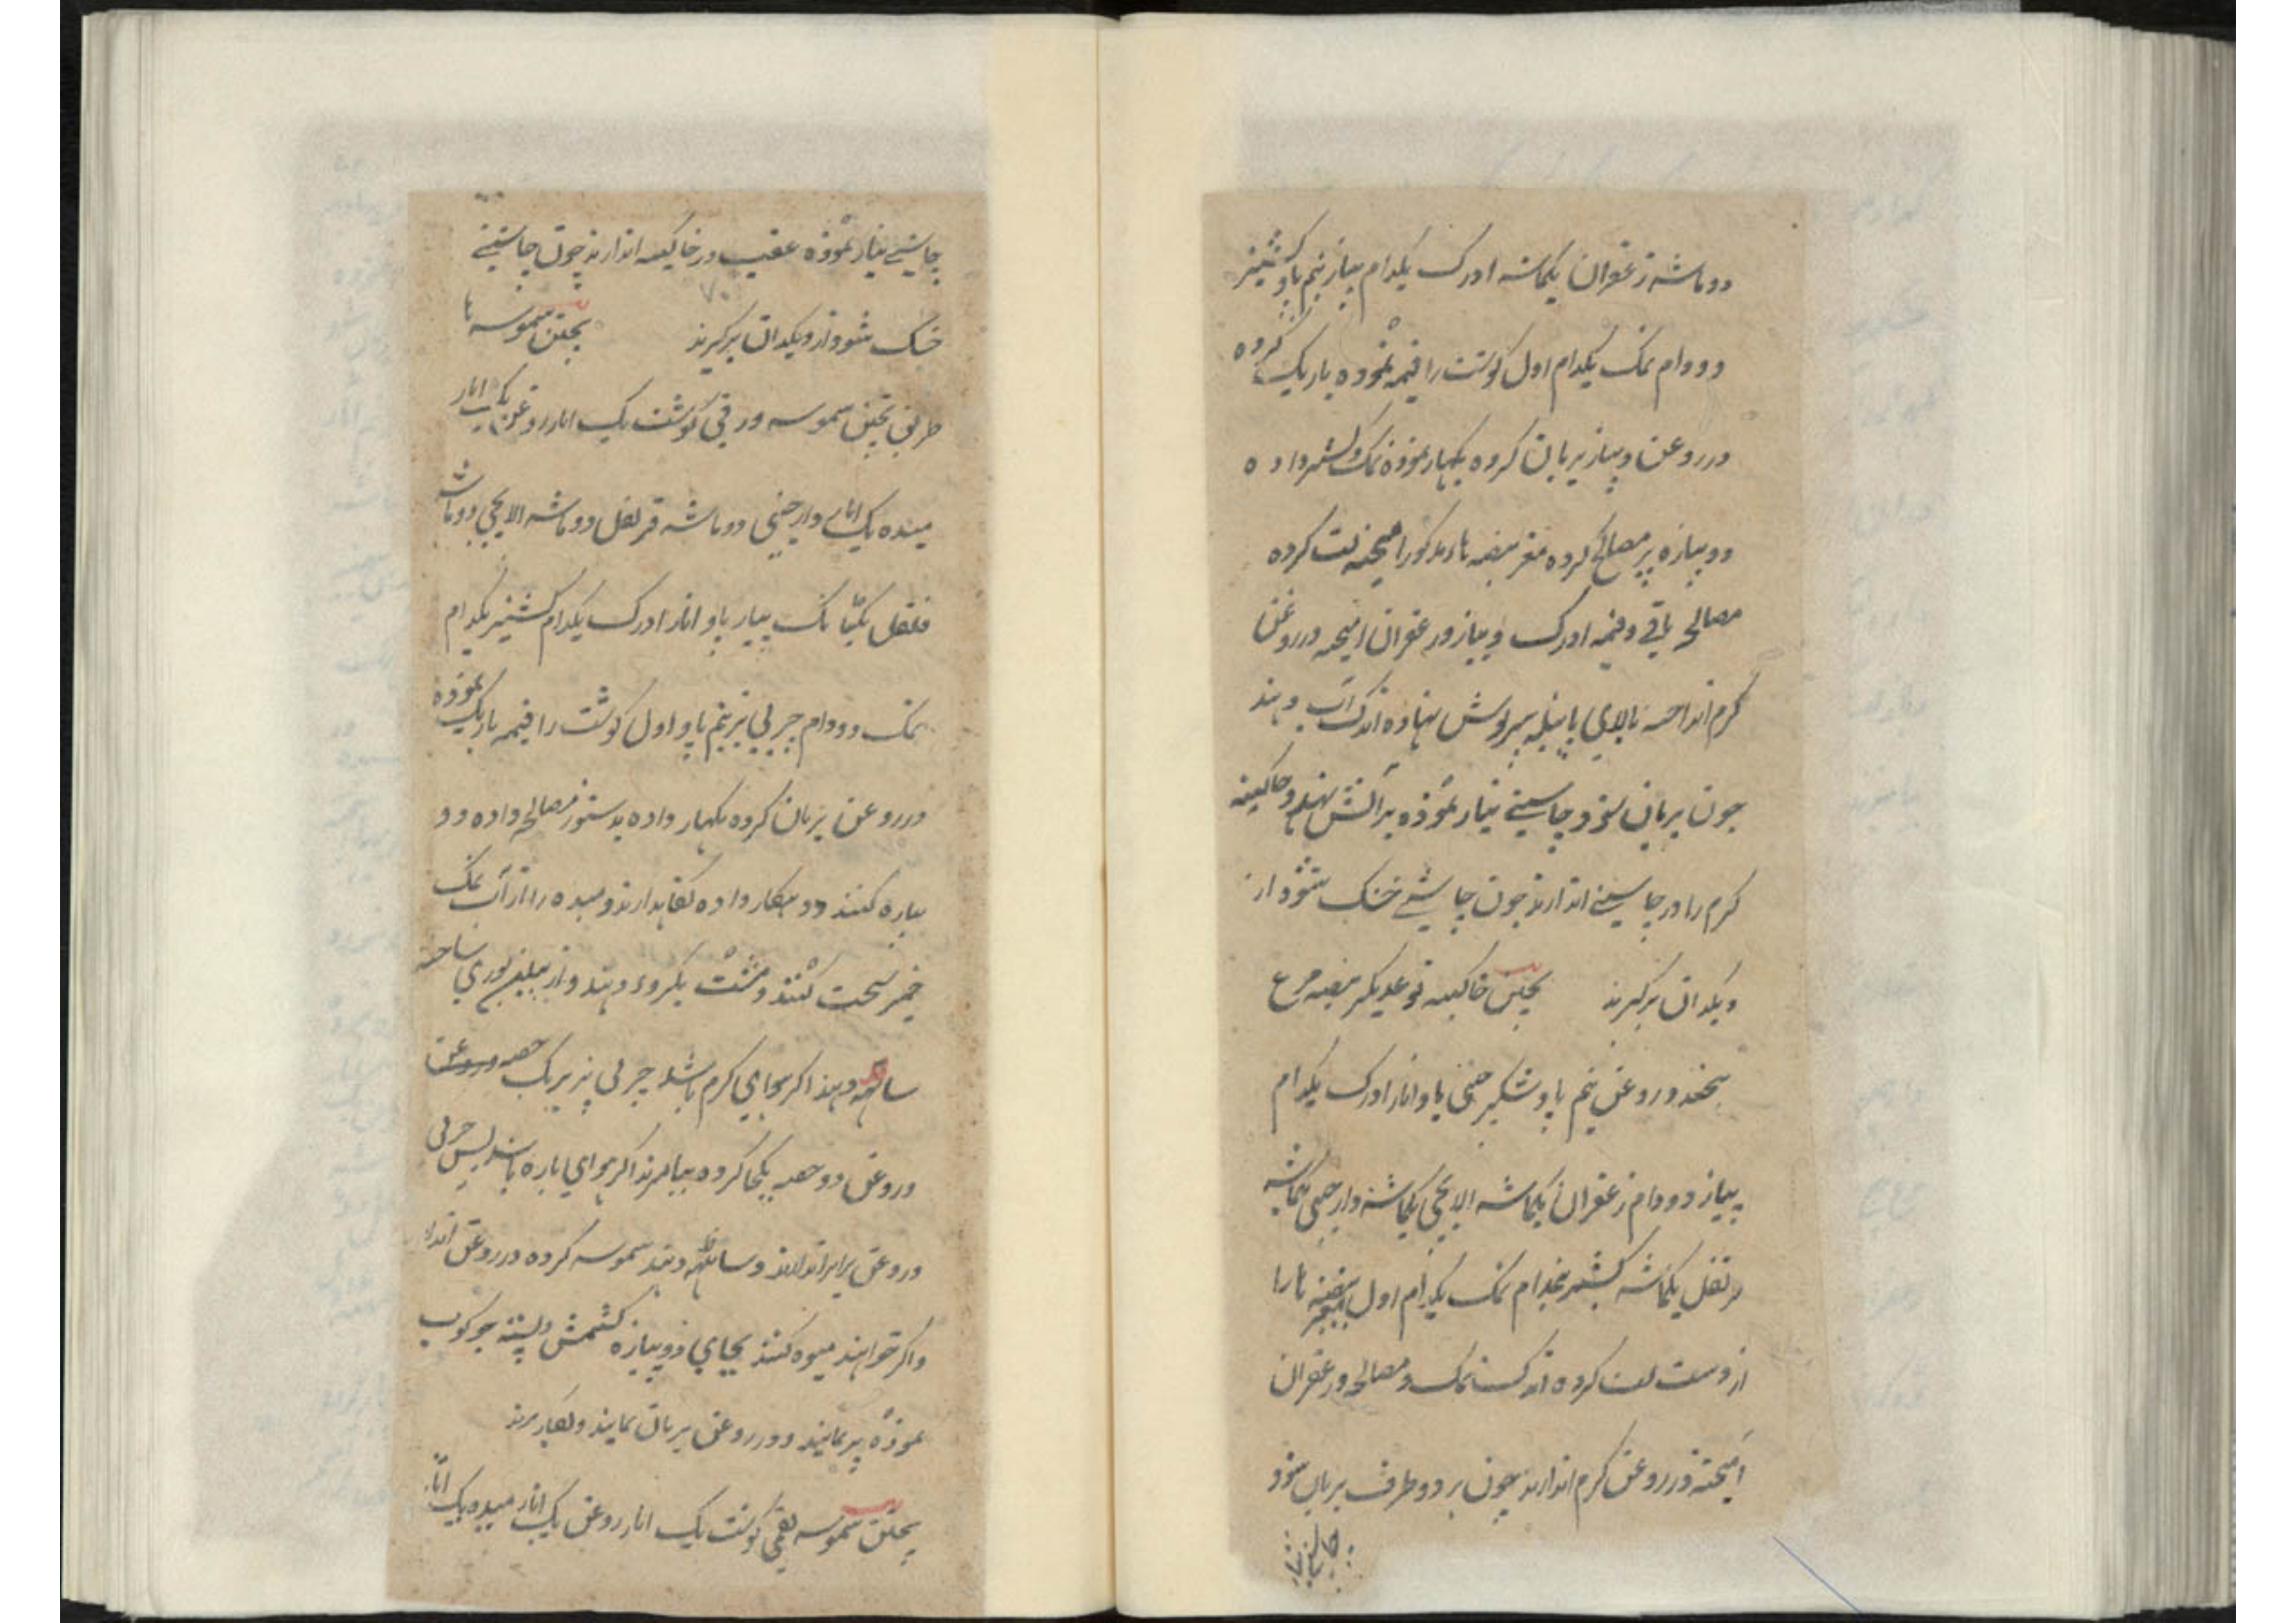 دو ماشه زعفران یکماشه ادرک یکدام پیاز نیم پاو کشنیز
دو دام نمک یکدام اول گوشت را قیمه نموده باریک کرده
در روغن و پیاز بریان کرده بگهار نموده نمک و کشنیز داده
دوپیازه پر مصالح کرده مغز بیضه ها مذکور امیخته لت کرده
مصالح باقی و قیمه ادرک و پیاز و زعفران امیخته در روغن
گرم انداخته بالای پاتیله سرپوش نهاده اندک آب دهند
چون بریان شود چاشنی تیار نموده بر آتش نهند و خاکینه
گرم را در چاشنی اندازند چون چاشنی خشک شود از
دیکدان برگیرند پختن خاکینه نوعدیگر بیضه مرغ
عدد روغن نیم پاو شکر چینی پاو انار ادرک یکدام
پیاز دو دام زعفران یکماشه الایچی یکماشه دارچینی یکماشه
قرنفل یکماشه کشنیز نمک یکدام اول بیضه ها را
از دست لت کرده اندک نمک و مصالح و زعفران
آمیخته در روغن گرم اندازند چون بر دو طرف بریان شود
چاشنی
چاشنی تیار نموده عقب در خاکینه اندازند چون چاشنی
خشک شود از دیکدان برگیرند پختن سموسه ها
طریق پختن سموسه ورقی گوشت یک انار روغن یک انار
میده یک انار دارچینی دو ماشه قرنفل دو ماشه الایچی دو ماشه
فلفل یکتانک پیاز پاو انار ادرک یکدام کشنیز یکدام
نمک دو دام چربی بز نیم پاو اول گوشت را قیمه باریک نموده
در روغن بریان کرده بگهار داده بدستور مصالح داده دو
پیازه کنند و بگهار داده نگاهدارند و میده را از آب نمک
خمیر سخت کنند و مشت دهند و از بیلن پوری ساخته
ساته دهند اگر هوای گرم باشد چربی بز یک حصه
و روغن دو حصه یکجا کرده بیامیزند اگر هوای باشد پس چربی
و روغن برابر اندازند و ساته دهند سموسه کرده در روغن اندازند
و اگر خواهند میوه کنند بجای دوپیازه کشمش و پسته جوکوب
نموده پر نمایند و در روغن بریان نمایند و بکار برند
پختن سموسه گوشت یک انار روغن یک انار میده یک انار